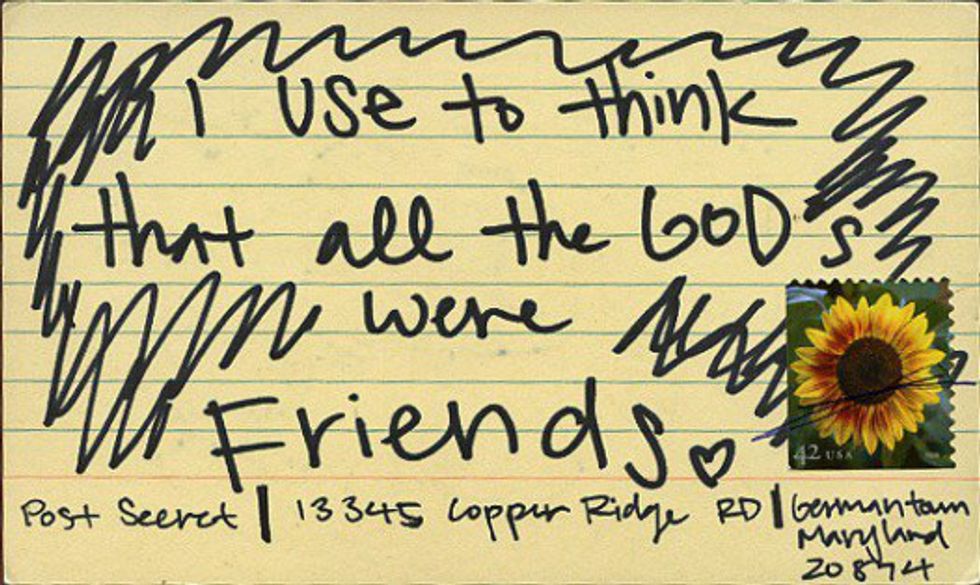 I use to think
that all the GOD's
were
Friends.
42 USA
Post Secret | 13345 Copper Ridge RD | Germantown
Maryland
20874